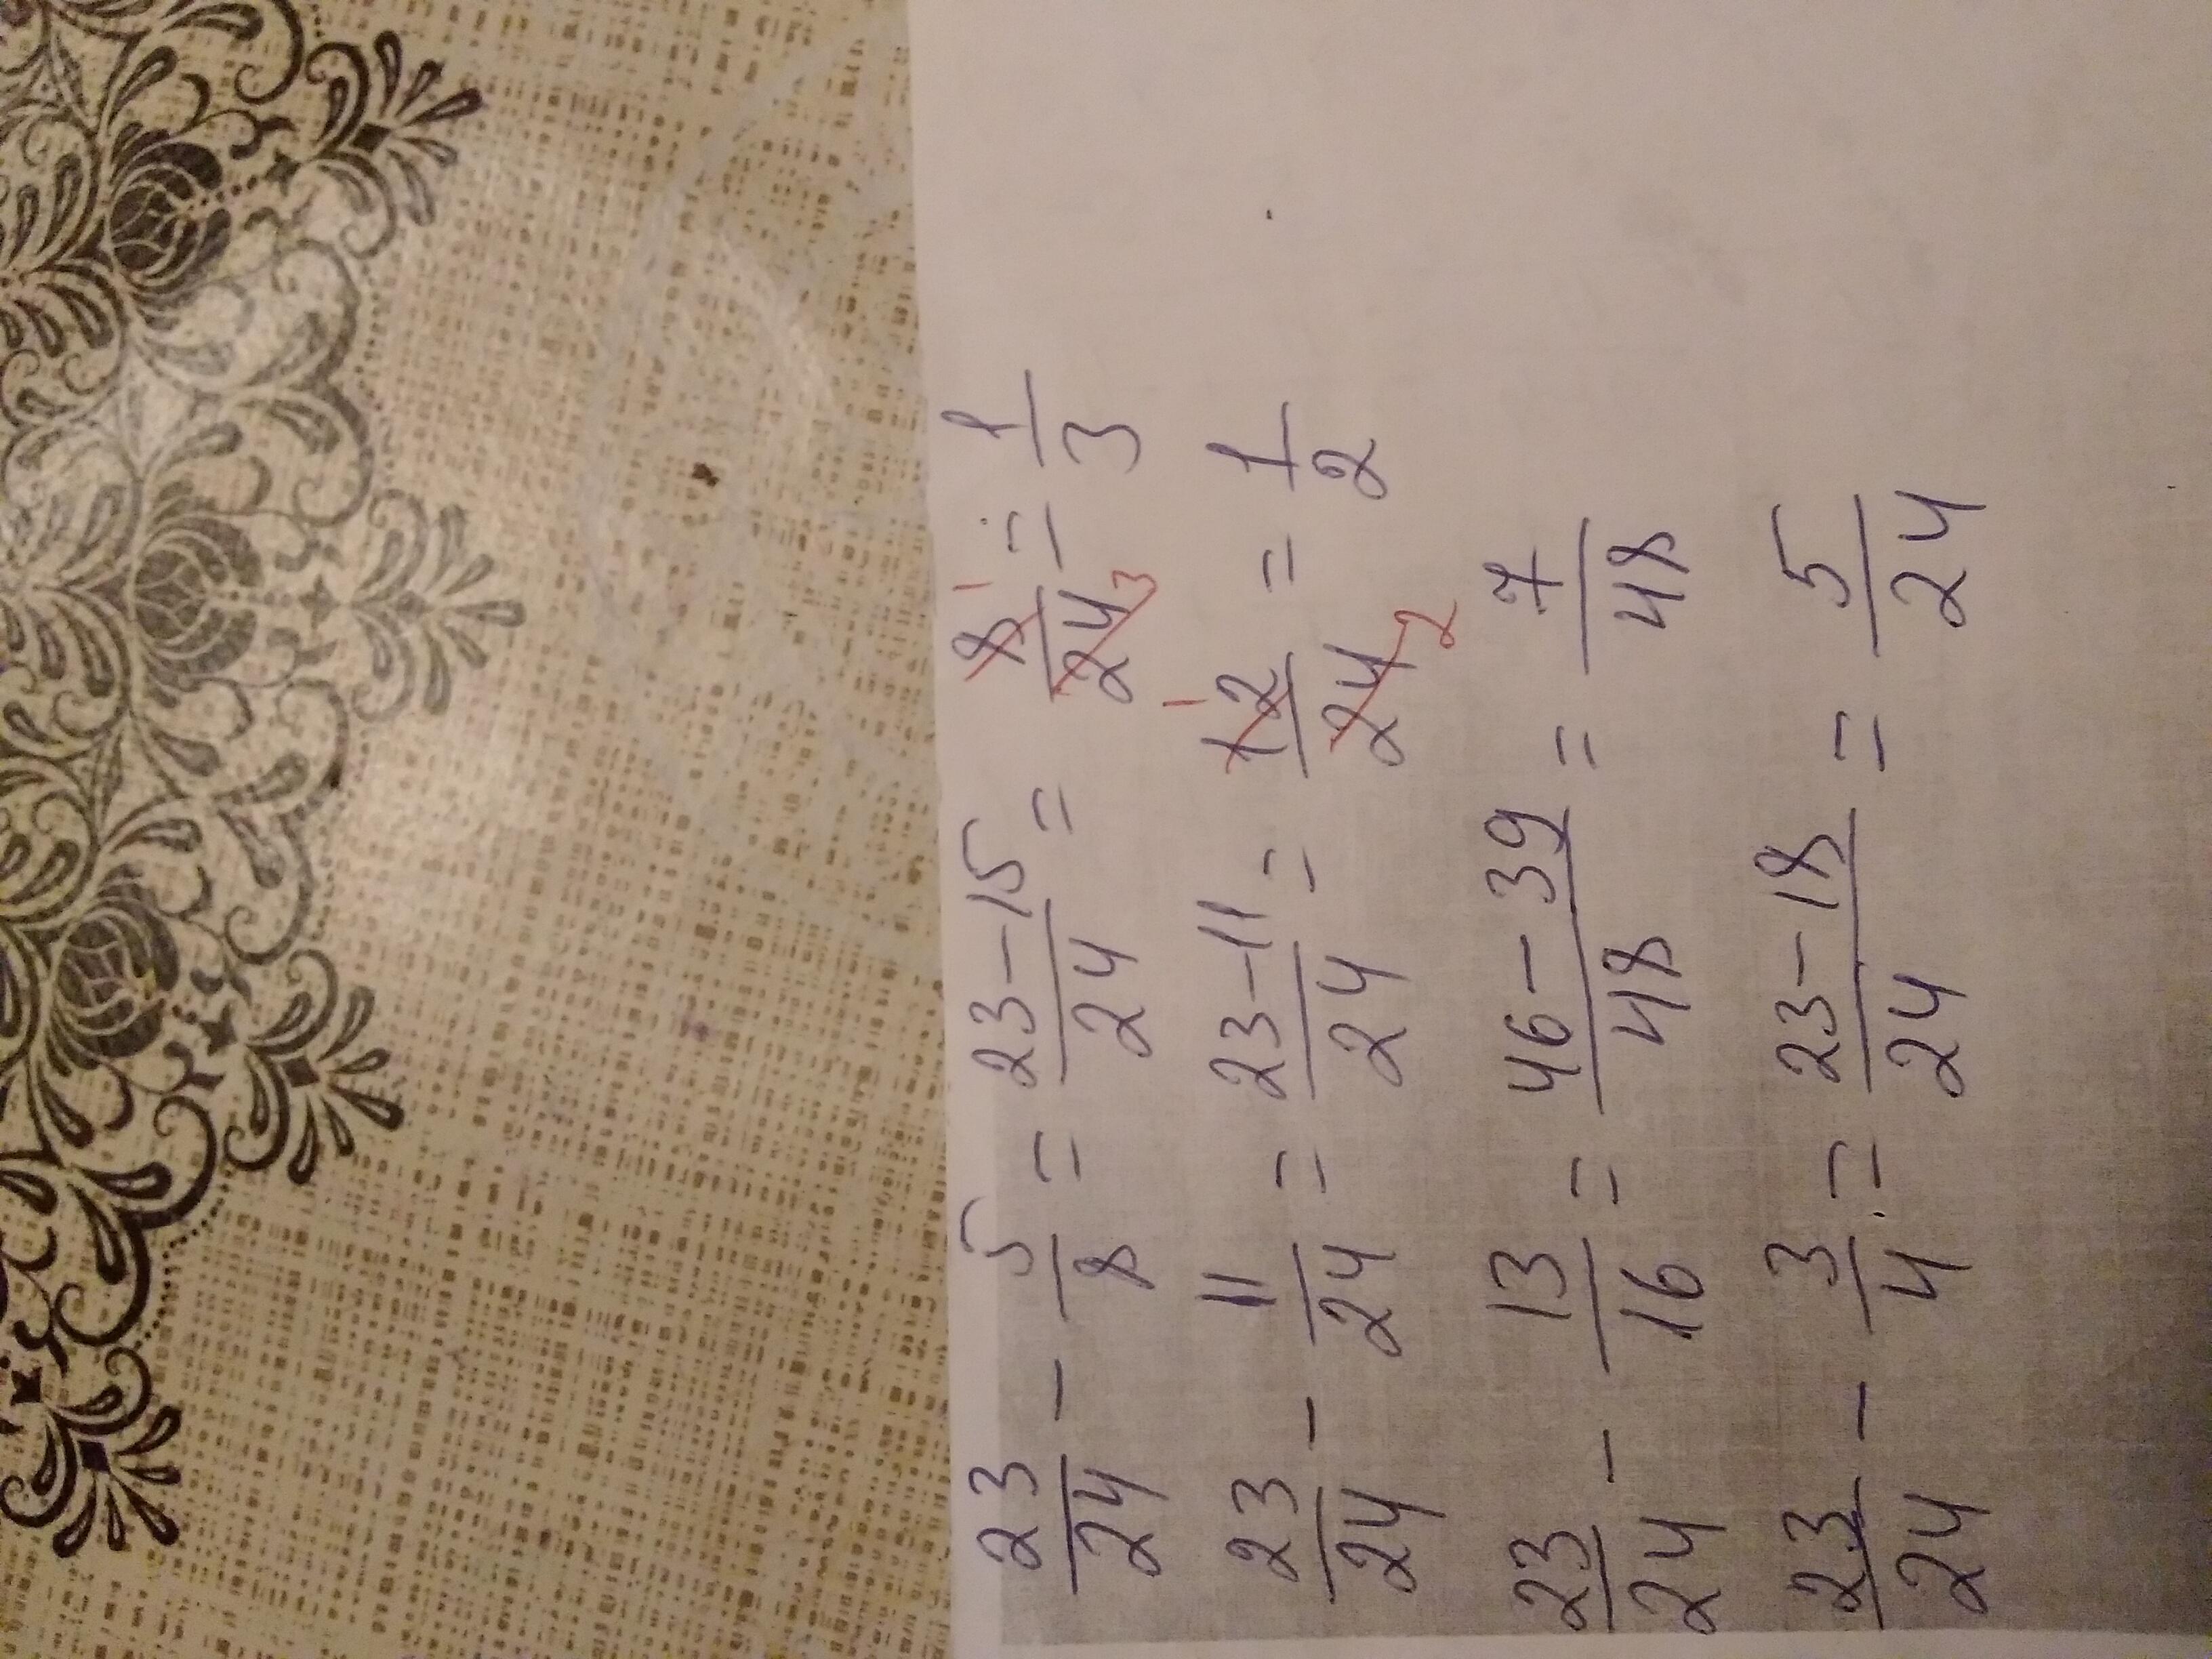 23/24 - 5/8 = (23-15)/24 = 8/24 1 3 = 1/3
23/24 - 11/24 = (23-11)/24 = 12/24 1 2 = 1/2
23/24 - 13/16 = (46-39)/48 = 7/48
23/24 - 3/4 = (23-18)/24 = 5/24